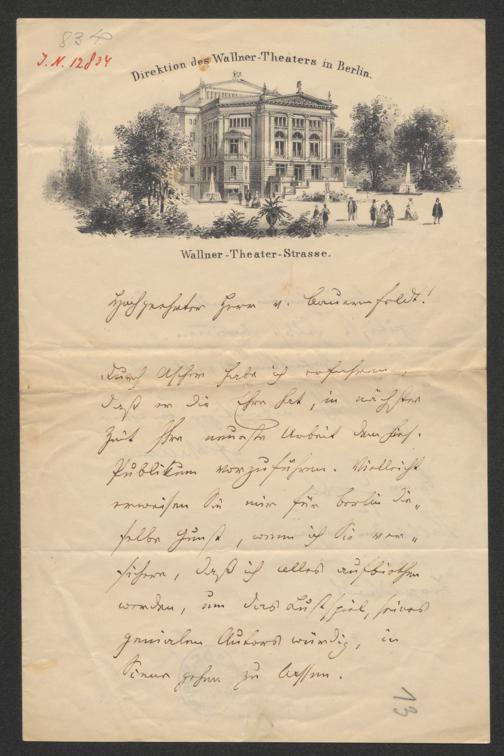 834
I.N. 12834
Direktion des Wallner-Theaters in Berlin.
Wallner-Theater-Strasse.
Hochgeehrter Herr v. Bauernfeldt!
Durch Ascher habe ich erfahren,
daß er die Ehre hat, in nächster
Zeit Ihre neueste Arbeit dem
Publikum vorzuführen. Vielleicht
erweisen Sie mir für Berlin die„
selbe Gunst, wenn ich Sie ver„
sichere, daß ich alles aufbiethen
werden, um das Lustspiel, seines
genialen Autors würdig, in
Scene gehen zu lassen.
13